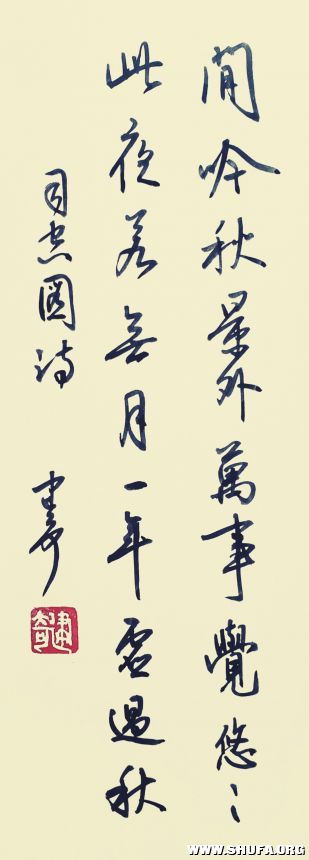 閒吟秋景外萬事覺悠〻
此夜若無月一年虛過秋
司空圖詩
建奇
WWW.SHUFA.ORG